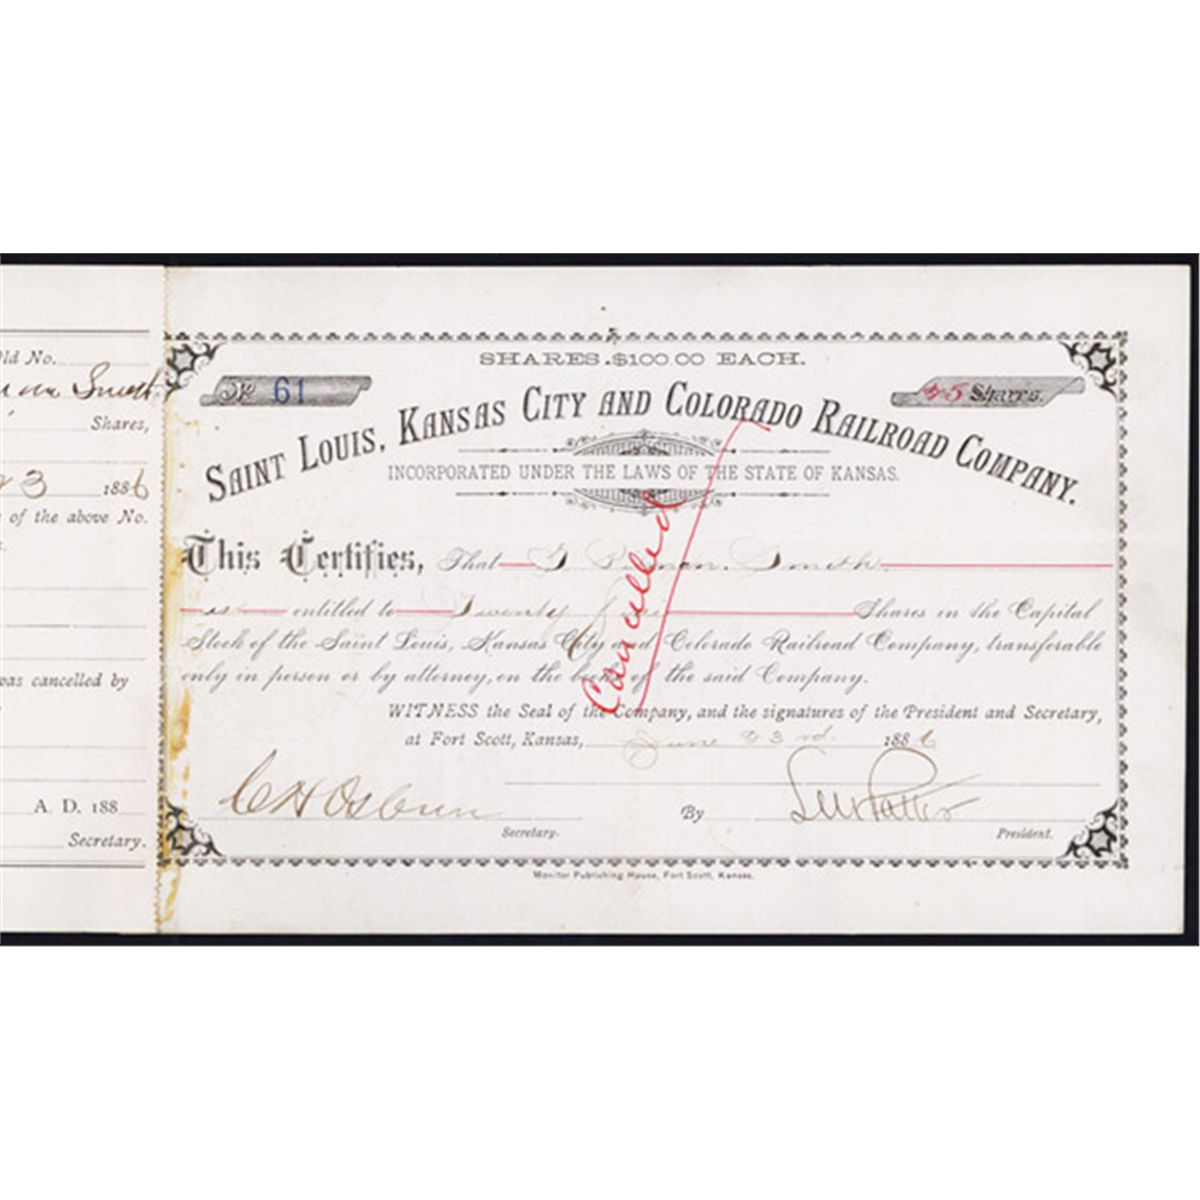 Old No.
Smith
Shares,
23 1886
s of the above No.
was cancelled by
A. D. 188
Secretary.
SHARES. $100.00 EACH.
No 61
25 Shares.
SAINT LOUIS, KANSAS CITY AND COLORADO RAILROAD COMPANY.
INCORPORATED UNDER THE LAWS OF THE STATE OF KANSAS.
This Certifies, That Smith
is entitled to Twenty five Shares in the Capital
Stock of the Saint Louis, Kansas City and Colorado Railroad Company, transferable
only in person or by attorney, on the books of the said Company.
Cancelled
WITNESS the Seal of the Company, and the signatures of the President and Secretary,
at Fort Scott, Kansas, June 23rd 1886
C H Osbun
Secretary.
By
President.
Monitor Publishing House, Fort Scott, Kansas.